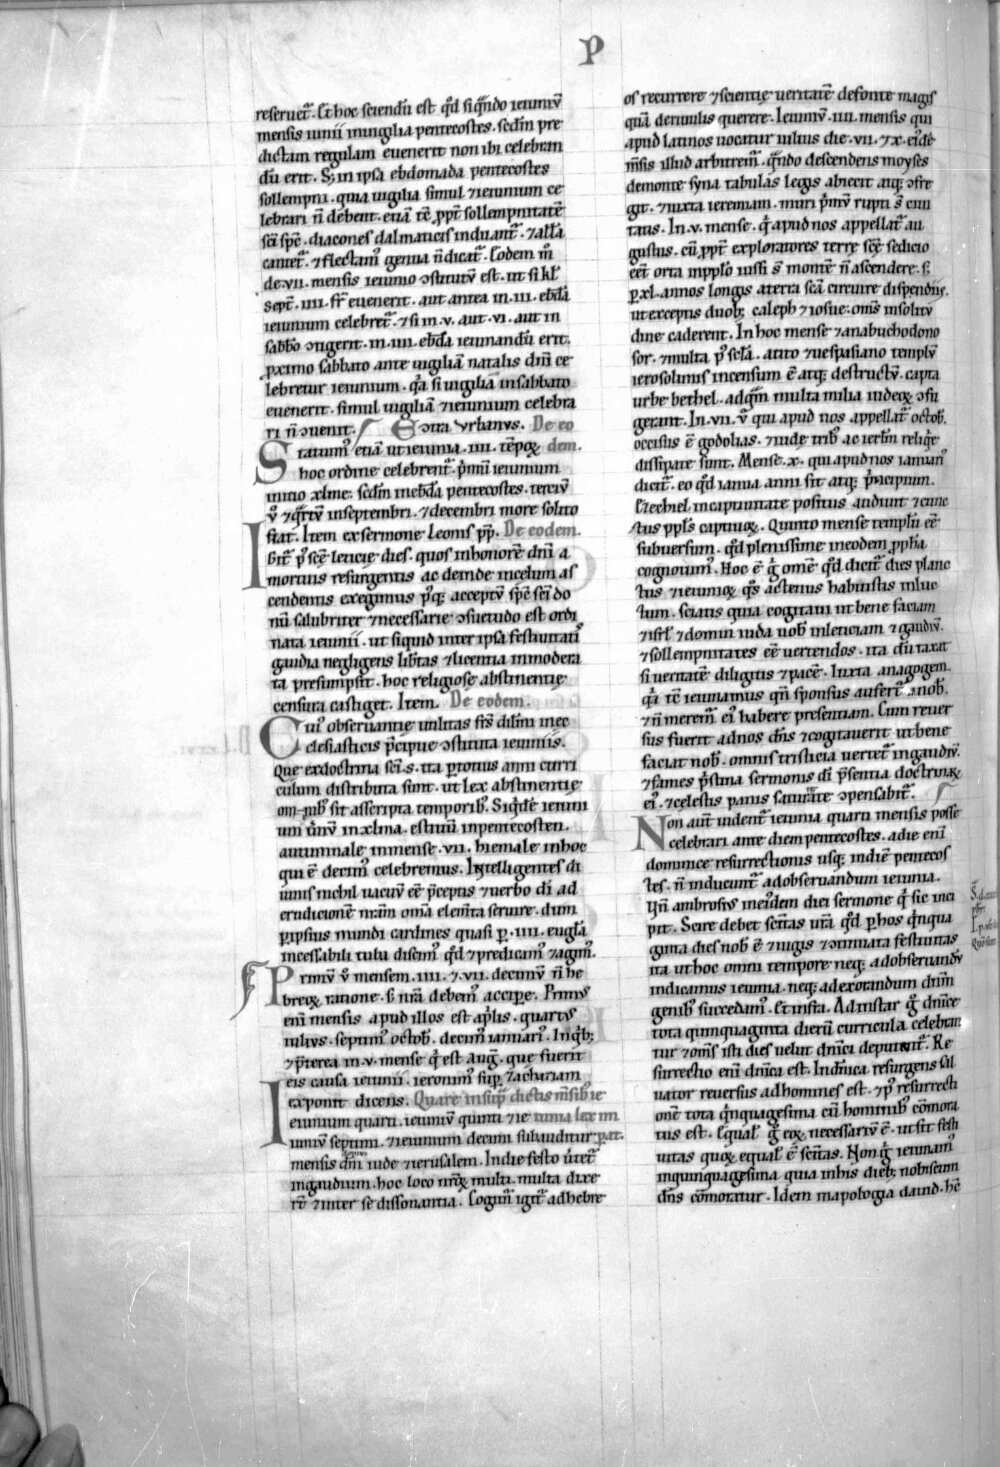 P
reseruet̄. Et hoc sciendū est qd̄ si qn̄do ieiuniū
mensis iunii in uigilia pentecostes. scdm̄ pre
dictam regulam euenerit non ibi celebran
dū erit. S; in ipsa ebdomada pentecostes
sollempni. quia uigilia simul ⁊ ieiunium ce
lebrari n̄ debent. etiā tc̄ ꝓpt̄ sollempnitatē
sc̄i sp̄c. diacones dalmaticis induant̄. ⁊ all̄a
cantet̄. ⁊ flectam᷒ genua n̄ dicat̄. Eodem m̊
de .vii. mensis ieiunio ↄstitutū est. ut si kl̄
sept̄. iiii. fr̄ euenerit. aut antea in .iii. ebd̄a
ieiunium celebret̄. ⁊ si in .v. aut .vi. aut in
sabb̄o ↄtigerit. in .iiii. ebd̄a ieiunandū erit.
ꝓximo sabbato ante uigiliā natalis dn̄i ce
lebretur ieiunium. qa si uigilia in sabbato
euenerit. simul uigiliā ⁊ ieiunium celebra
ri n̄ ↄuenit. Ecōtra Vrbanus. De eo
Statuim᷒ etiā ut ieiunia .iiii. tēpoꝝ dem.
hoc ordine celebrent̄. pͥmū ieiunium
initio xlme. scdm̄ in ebd̄a pentecostes. terciū
ů ⁊ qrtū in septembri. ⁊ decembri more solito
fiat. Item ex sermone Leonis pp̄. De eodem.
Igit̄ p᷒ sc̄e leticie dies. quos in honorē dn̄i a
mortuis resurgentis ac deinde in celum as
cendentis exegimus p᷒q; acceptū sp̄c sc̄i do
nū salubriter ⁊ necessarie ↄsuetudo est ordi
nata ieiunii. ut siquid inter ipsa festiuitatū
gaudia negligens lib̄tas ⁊ licentia inmodera
ta presumpsit. hoc religiose abstinentie
censura castiget. Item. De eodem.
Cui᷒ obseruantie utilitas frs̄ dilm̄i in ec
clesiasticis p̄cipue ↄstituta ieiuniis.
Que ex doctrina sc̄i .s. ita ꝑ totius anni curri
culum distributa sunt. ut lex abstinentie
omnib᷒ sit asscripta temporib᷒. Siqͥdē ieiuni
um ůnū in xlma. estiuū in pentecosten.
autumnale in mense .vii. hiemale in hoc
qui ē decim᷒ celebremus. Intelligentes di
uinis nichil uacuū eē p̄ceptis ⁊ uerbo di̅ ad
erudicionē nr̄am om̄ia elem̄ta seruire. dum
ꝑ ipsius mundi cardines quasi ꝑ .iiii. eugl̄a
incessabili tuba discim᷒ qd̄ ⁊ predicam᷒ ⁊ agim᷒.
Primū ů mensem .iiii. ⁊ .vii. decimū n̄ he
breoꝝ ratione. s; nr̄a debem᷒ accipe. Primus
eni̅ mensis apud illos est aplis. quartus
iulius. septim᷒ octob᷒. decim᷒ ianuari᷒. In qͥb;
⁊ p̄terea in .v. mense qͥ est aug᷒. que fuerit
eis causa ieiunii. ieronim᷒ sup̄ Zachariam
exponit dicens. Quare in sup̄dictis m̄sib᷒ ie
Ieiunium quarti. ieiuniū quinti ⁊ ie iunia lex in
iuniū septimi. ⁊ ieiunium decimi subauditur pat.
mensis dom᷒ iude ⁊ ierusalem. In die festo ůtet̄
in gaudium. hoc loco nr̄oꝝ multi. multa dixe
rt̄ ⁊ inter se dissonantia. Cogim᷒ igit̄ ad hebre
os recurrere ⁊ scientie ueritatē de fonte magis
quā de riuulis querere. Ieiuniū .iiii. mensis qui
apud latinos uocatur iulius die .vii. ⁊ x. ei᷒dē
m̄sis illud arbitrem᷒. qn̄do descendens moyses
de monte syna tabulas legis abiecit atq; ↄfre
git. ⁊ iuxta ieremiam. muri pͥmū rupti s̄ ciui
tatis. In .v. mense. qͥ apud nos appellat̄ au
gustus. cū ꝓpt̄ exploratores terre sc̄e sedicio
eēt orta in ppl̄o iussi s̄ montē n̄ ascendere. s;
ꝑ .xl. annos longis ad terrā sc̄am circuire dispendiis.
ut exceptis duob; caleph ⁊ iosue. om̄s in solitu
dine caderent. In hoc mense ⁊ a nabuchodono
sor. ⁊ multa p᷒ sc̄la. a tito ⁊ uespasiano templū
ierosolimis incensum ē atq; destructū. capta
urbe bethel. ad qm̄ multa milia iudeoꝝ ↄfu
gerant. In .vii. ů qui apud nos appellat̄ octob᷒.
occisus ē godolias. ⁊ iude trib᷒ ac ierlm̄ reliqe
dissipate sunt. Mense .x. qui apud nos ianuari᷒
dicit̄. eo qd̄ ianua anni sit atq; pͥncipium.
Ezechiel in captiuitate positus audiuit ⁊ cunc
tus ppl̄s captiuoꝝ. Quinto mense templū eē
subuersum. qd̄ plenissime in eodem ꝓph̄a
cognouim᷒. Hoc ē g̊ omē qd̄ dicit̄ dies planc
tus ⁊ ieiunioꝝ qͦs actenus habuistis in luc
tum. sciatis quia cogitaui ut bene faciam
⁊ isrl̄ ⁊ domui iuda uob᷒ in leticiam ⁊ gaudiū.
⁊ sollempnitates eē uertendos. ita dū taxat
si ueritatē diligitis ⁊ pacē. Iuxta anagogem.
qa tc̄ ieiunamus qn̄ sponsus aufert̄ a nob᷒.
⁊ n̄ merem᷒ ei᷒ habere presentiam. Cum reuer
sus fuerit ad nos dn̄s ⁊ cogitauerit ut bene
faciat nob᷒. omnis tristicia uertet̄ in gaudiū.
⁊ fames pͥstina sermonis di̅ p̄sentia doctrinaꝝ
ei᷒. ⁊ celestis panis saturitate ↄpensabit̄.
Non aut̄ uident̄ ieiunia quarti mensis posse
celebrari ante diem pentecostes. a die eni̅
dominice resurrectionis usq; in diē pentecos
tes. n̄ inducunt̄ ad obseruandum ieiunia.
Vn̄ ambrosius in ei᷒dem diei sermone qͥ sic inci
pit. Scire debet sc̄itas ur̄a qd̄ ꝑ hos qͥnqua
ginta dies nob᷒ ē ⁊ iugis ⁊ ↄtinuata festiuitas
ita ut hoc omni tempore neq; ad obseruandū
indicamus ieiunia. neq; ad exorandum dn̄m
genib᷒ succedam᷒. Et infra. Ad instar g̊ dn̄ice
tota quinquaginta dierū curricula celebran
tur ⁊ om̄s isti dies uelut dn̄ici deputant̄. Re
surrectio eni̅ dn̄ica est. In dn̄ica resurgens sal
uator reuersus ad homines est. ⁊ p᷒ resurrecti
onē tota qͥnquagesima cū hominib᷒ cōmora
tus est. Equal᷒ g̊ eoꝝ necessariū ē. ut sit festi
uitas quoꝝ equal᷒ ē sc̄itas. Non g̊ ieiunam᷒
in quinquagesima quia in his dieb; nobiscum
dn̄s cōmoratur. Idem in apologia dauid. hē